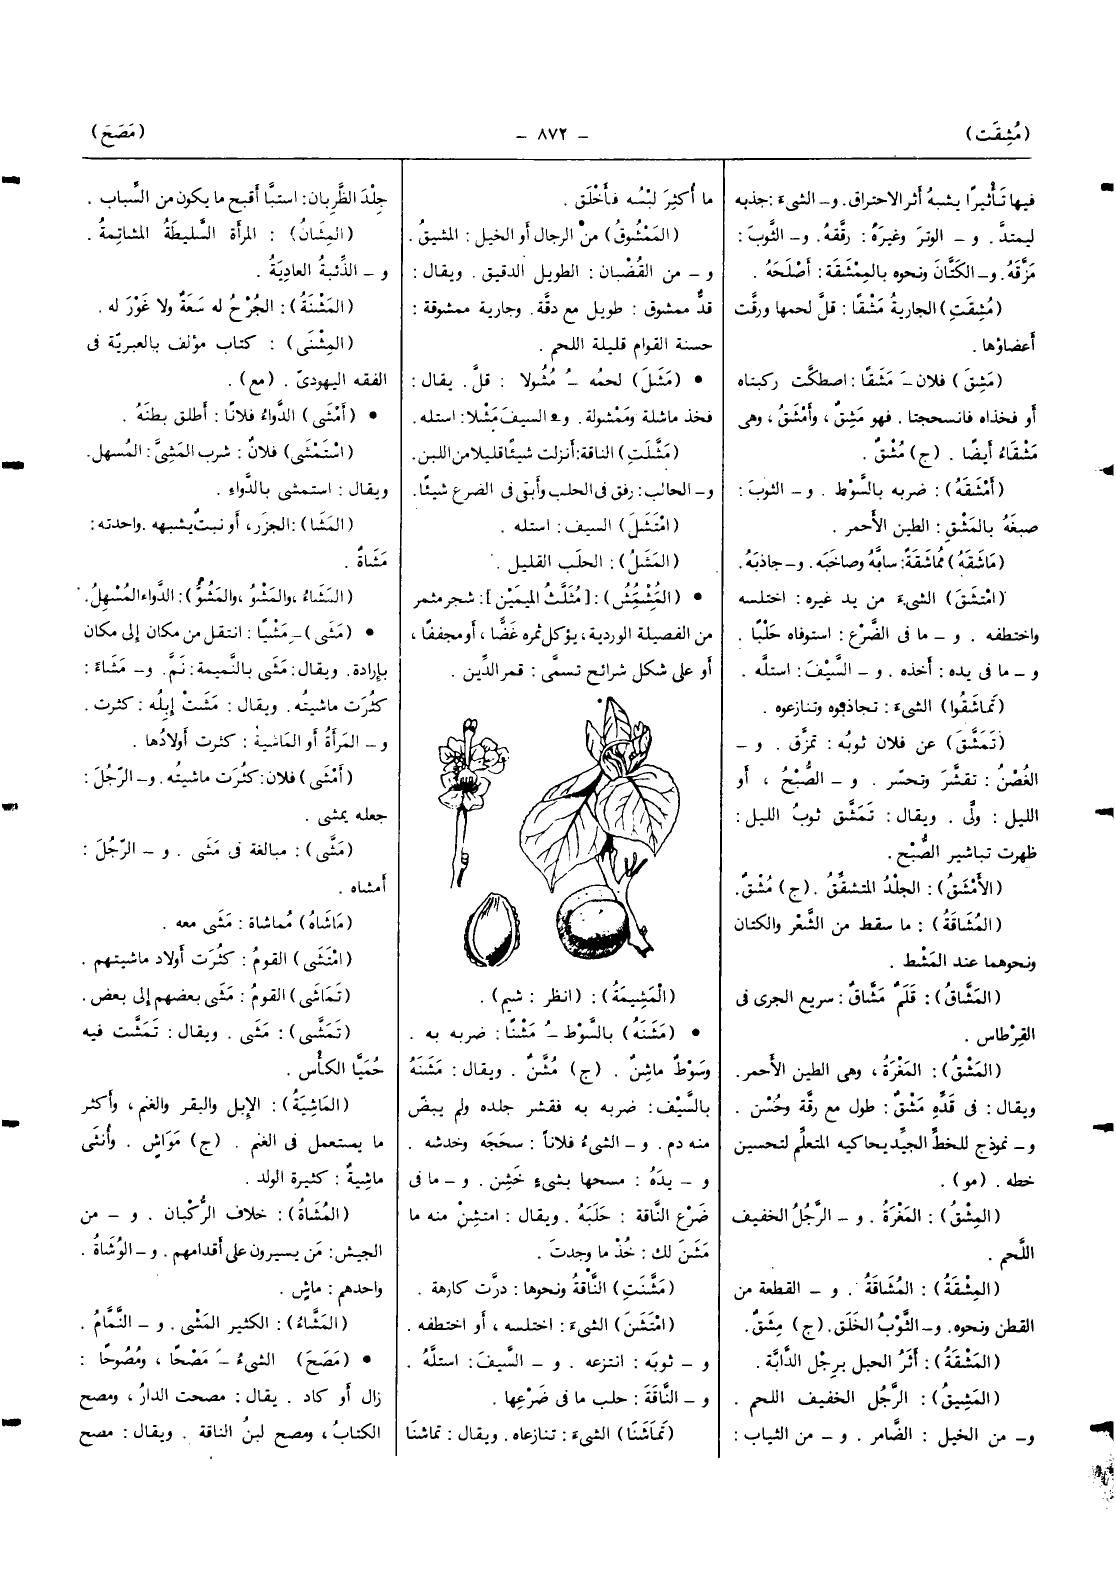 (مُشِقَت)
– ٨٧٢ –
(مَصَحَ)
فيها تَأْثيرًا يشبهُ أثر الاحتراق. و– الشيءَ: جذبه
ليمتدَّ . و – الوترَ وغيرَهُ : رقَّقهُ. و– الثَّوبَ :
مَزَّقَهُ. و– الكَتَّانَ ونحوه بالمِمْشَقَة: أصْلَحَهُ .
(مُشِقَتِ) الجاريةُ مَشْقًا : قلَّ لحمها ورقَّت
أعضاؤها .
(مَشِقَ) فلان –َ مَشَقًا : اصطكَّت ركبتاه
أو فخذاه فانسحجتا . فهو مَشِقٌ ، وأمْشَقُ ، وهى
مَشْقَاءُ أيضًا . (ج) مُشْقٌ .
(أمْشَقَهُ) : ضربه بالسَّوْط . و – الثوبَ :
صبغَهُ بالمَشْقِ : الطين الأحمر .
(مَاشَقَهُ) مُمَاشَقَةً : سابَّهُ وصاخَبَه . و– جاذبَهُ .
(امْتَشَقَ) الشيءَ من يد غيره : اختلسه
واختطفه . و – ما فى الضَّرْع : استوفاه حَلْبًا .
و – ما فى يده : أخذه . و – السَّيْفَ : استلَّه .
(تَماشَقُوا) الشيءَ : تجاذبوه وتنازعوه .
(تَمَشَّقَ) عن فلان ثوبُه : تمزَّق . و –
الغُصْنُ : تقشَّرَ وتحسّر . و – الصُّبْحُ ، أو
الليل : ولَّى . ويقال : تَمَشَّق ثوبُ الليل :
ظهرت تباشير الصُّبْح .
(الأمْشَقُ) : الجلْدُ المتشقِّقُ . (ج) مُشْقٌ.
(المُشَاقَةُ) : ما سقط من الشَّعْر والكتان
ونحوهما عند المَشْط .
(المَشَّاقُ) : قَلَمٌ مَشَّاقٌ : سريع الجرى فى
القِرْطاس .
(المَشْقُ) : المَغْرَةُ ، وهى الطين الأحمر.
ويقال : فى قَدِّهِ مَشْقٌ : طول مع رقَّة وحُسْن .
و – نموذج للخطِّ الجيِّد يحاكيه المتعلِّم لتحسين
خطه . (مو) .
(المِشْقُ) : المَغْرَةُ . و – الرَّجُلُ الخفيف
اللَّحم .
(المِشْقَةُ) : المُشَاقَةُ . و – القطعة من
القطن ونحوه. و– الثَّوْبُ الخَلَق. (ج) مِشَقٌ.
(المَشْقَةُ) : أثَرُ الحبل برِجْل الدَّابَّة .
(المَشِيقُ) : الرَّجُل الخفيف اللحم .
و– من الخيل : الضَّامر . و – من الثياب :
ما أُكثِرَ لبْسُه فأَخْلَق .
(المَمْشُوقُ) منْ الرجال أو الخيل : المشيقُ .
و – من القُضْبان : الطويل الدقيق . ويقال :
قدٌّ ممشوق : طويل مع دقَّة. وجارية ممشوقة :
حسنة القوام قليلة اللحم .
• (مَشَلَ) لحمُه –ُ مُشُولا : قلَّ . يقال :
فخذ ماشلة ومَمْشولة . و– السيفَ مَشْلا: استله.
(مَشَّلَتِ) الناقة: أنزلت شيئًا قليلا من اللبن.
و– الحالب: رفق فى الحلب وأبقى فى الضرع شيئًا.
(امْتَشَلَ) السيف: استله .
(المَشَلُ) : الحلَب القليل .
• (المُشْمُشُ) : [مُثَلَّثُ الميمَيْن] : شجر مثمر
من الفصيلة الوردية، يؤكل ثمره غَضًّا ، أو مجففا ،
أو على شكل شرائح تسمَّى : قمر الدِّين .
(الْمَشِيمَةُ) : (انظر : شيم) .
• (مَشَنَهُ) بالسَّوْط –ُ مَشْنًا : ضربه به .
وسَوْطٌ ماشِنٌ . (ج) مُشَّنٌ . ويقال: مَشَنَهُ
بالسَّيْف : ضربه به فقشر جلده ولم يبضّ
منه دم . و – الشيءُ فلاناً : سحَجَه وخدشه .
و – يدَهُ : مسحها بشيءٍ خَشِن . و– ما فى
ضَرْع النَّاقة : حلَبَهُ . ويقال : امتشِنْ منه ما
مَشَنَ لك : خُذْ ما وجدتَ .
(مَشَّنَتِ) النَّاقةُ ونحوها : درَّت كارهة .
(امْتَشَنَ) الشيءَ : اختلسه ، أو اختطفه .
و – ثوبَه : انتزعه . و – السَّيفَ: استلَّهُ .
و – النَّاقةَ : حلب ما فى ضَرْعِها .
(تَمَاشَنَا) الشيءَ : تنازعاه. ويقال : تماشنَا
جِلْدَ الظَّرِبان: استبَّا أقبح ما يكون من السِّباب .
(المِشَانُ) : المرأة السَّليطَةُ المشاتِمَةُ .
و – الذِّئبةُ العادِيَةُ .
(المَشْنَةُ) : الجُرْحُ له سَعَةٌ ولا غَوْرَ له .
(المِشْنَى) : كتاب مؤلف بالعبريَّة فى
الفقه اليهودىّ . (مع) .
• (أمْشَى) الدَّواءُ فلانًا : أطلق بطنَهُ .
(اسْتَمْشَى) فلانٌ : شرب المَشِىَّ : المُسهل.
ويقال : استمشى بالدَّواء .
(المَشَا) : الجزَر، أو نبتٌ يشبهه .واحدته :
مَشَاةٌ .
(المَشَاءُ ،والمَشْوُ ،والمَشُوُّ) : الدَّواء المُسْهِلُ.
• (مَشَى) –ِ مَشْيًا : انتقل من مكان إلى مكان
بإرادة. ويقال : مَشَى بالنَّميمة: نَمَّ. و– مَشَاءً :
كثُرَت ماشيتُه. ويقال : مَشَتْ إبلُه : كثرت .
و – المَرأةُ أو الماشيةُ : كثرت أولادُها .
(أمْشَى) فلان: كثُرَت ماشيتُه. و– الرّجُلَ :
جعله يمشى .
(مَشَّى) : مبالغة فى مَشَى . و – الرّجُلَ :
أمشاه .
(مَاشَاهُ) مُماشاة : مَشَى معه .
(امْتَشَى) القومُ : كثُرت أولاد ماشيتهم .
(تَمَاشَى) القومُ : مَشَى بعضهم إلى بعض.
(تَمَشَّى) : مَشَى . ويقال : تَمَشَّت فيه
حُمَيَّا الكأْس .
(المَاشِيَةُ) : الإبل والبقر والغنم ، وأكثر
ما يستعمل فى الغنم . (ج) مَوَاشٍ . وأُنثَى
ماشِيةٌ : كثيرة الولد .
(المُشَاةُ) : خلاف الرُّكْبان . و – من
الجيش: مَن يسيرون على أقدامهم. و– الوُشَاةُ .
واحدهم : ماش .
(المَشَّاءُ) : الكثير المَشْى . و – النَّمَّامُ .
• (مَصَحَ) الشيءُ –َ مَصْحًا ، ومُصُوحًا :
زال أو كاد . يقال : مصحت الدارُ ، ومصح
الكتابُ ، ومصح لبنُ الناقة . ويقال : مصح